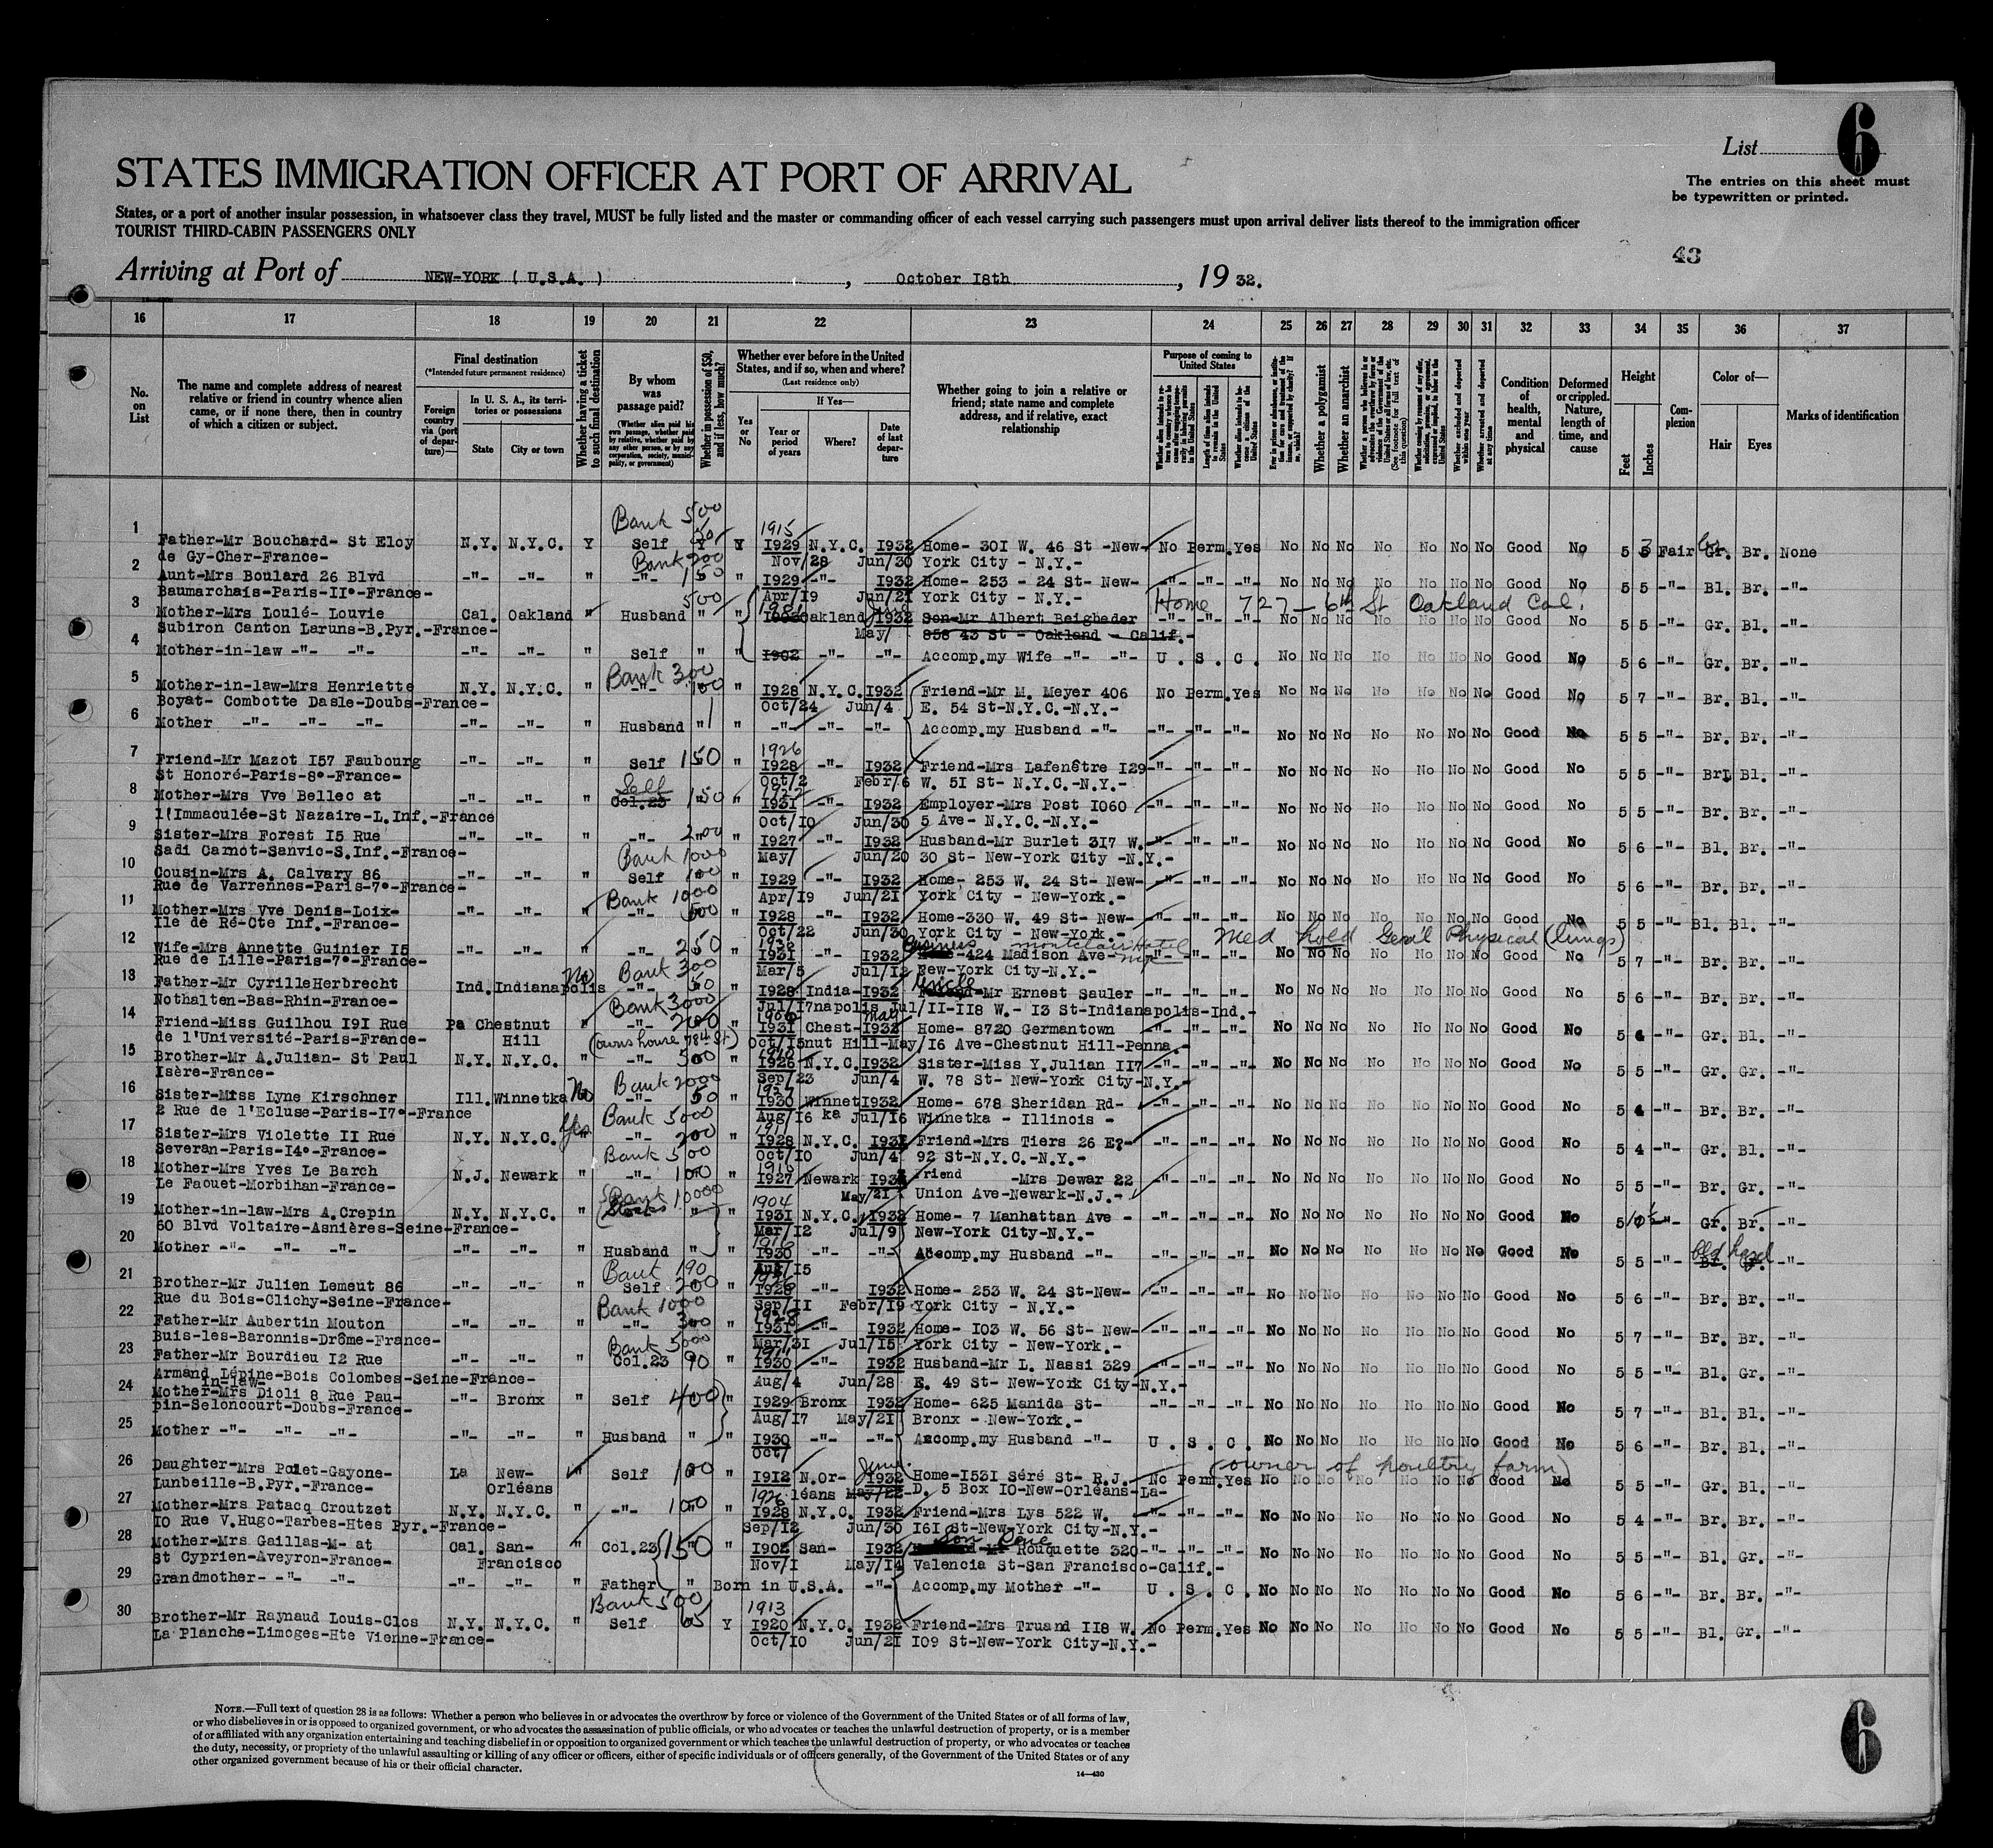 List 6
The entries on this sheet must
be typewritten or printed.
STATES IMMIGRATION OFFICER AT PORT OF ARRIVAL
States, or a port of another insular possession, in whatsoever class they travel, MUST be fully listed and the master or commanding officer of each vessel carrying such passengers must upon arrival deliver lists thereof to the immigration officer
TOURIST THIRD-CABIN PASSENGERS ONLY
43
Arriving at Port of NEW-YORK ( U.S.A. ) , October I8th , 19 32.
16 17 18 19 20 21 22 23 24 25 26 27 28 29 30 31 32 33 34 35 36 37
No. on List
The name and complete address of nearest relative or friend in country whence alien came, or if none there, then in country of which a citizen or subject.
Final destination
(*Intended future permanent residence)
Foreign country via (port of departure)—
In U. S. A., its territories or possessions
State City or town
Whether having a ticket to such final destination
By whom was passage paid?
(Whether alien paid his own passage, whether paid by relative, whether paid by any other person, or by any corporation, society, municipality, or government)
Whether in possession of $50, and if less, how much?
Whether ever before in the United States, and if so, when and where?
(Last residence only)
Yes or No
If Yes—
Year or period of years Where? Date of last departure
Whether going to join a relative or friend; state name and complete address, and if relative, exact relationship
Purpose of coming to United States
Whether a polygamist
Whether an anarchist
Condition of health, mental and physical
Deformed or crippled. Nature, length of time, and cause
Height
Feet Inches
Complexion
Color of—
Hair Eyes
Marks of identification
Bank 500
1 50 1915
Father-Mr Bouchard- St Eloy N.Y. N.Y.C. Y Self Y Y I929 N.Y.C. I932 Home- 30I W. 46 St -New- No Perm. Yes No No No No No No No Good No 5 5 Fair Gr. Br. None
de Gy-Cher-France- Bank 200 Nov/28 Jun/30 York City - N.Y.-
2 Aunt-Mrs Boulard 26 Blvd -"- -"- " -"- 150 " I929 -"- I932 Home- 253 - 24 St- New- -"- -"- -"- No No No No No No No Good No 5 5 -"- Bl. Br. -"-
Baumarchais-Paris-II°-France- 500 Apr/19 Jun/21 York City - N.Y.- Home 727 - 6th St Oakland Cal.
3 Mother-Mrs Loulé- Louvie Cal. Oakland " Husband " " Oakland I932 Son-Mr Albert Beigbeder -"- -"- -"- No No No No No No No Good No 5 5 -"- Gr. Bl. -"-
Subiron Canton Laruns-B.Pyr.-France- May/ 858 43 St - Oakland - Calif.-
4 Mother-in-law -"- -"- -"- -"- " Self " " I902 -"- -"- Accomp.my Wife -"- -"- U . S . C . No No No No No No No Good No 5 6 -"- Gr. Br. -"-
Bank 300
5 Mother-in-law-Mrs Henriette N.Y. N.Y.C. " -"- 100 " I928 N.Y.C. I932 Friend-Mr M. Meyer 406 No Perm. Yes No No No No No No No Good No 5 7 -"- Br. Bl. -"-
Boyat- Combotte Dasle-Doubs-France- Oct/24 Jun/4 E. 54 St-N.Y.C.-N.Y.-
6 Mother -"- -"- -"- -"- -"- " Husband " " -"- -"- -"- Accomp.my Husband -"- -"- -"- -"- No No No No No No No Good No 5 5 -"- Br. Br. -"-
1926
7 Friend-Mr Mazot I57 Faubourg -"- -"- " Self 150 " I928 -"- I932 Friend-Mrs Lafenêtre I29 -"- -"- -"- No No No No No No No Good No 5 5 -"- Br. Bl. -"-
St Honoré-Paris-8°-France- Self Oct/2 Febr/6 W. 5I St- N.Y.C.-N.Y.-
8 Mother-Mrs Vve Bellec at -"- -"- " Col.23 150 " I93I -"- I932 Employer-Mrs Post I060 -"- -"- -"- No No No No No No No Good No 5 5 -"- Br. Br. -"-
l'Immaculée-St Nazaire-L.Inf.-France Oct/I0 Jun/30 5 Ave- N.Y.C.-N.Y.-
9 Sister-Mrs Forest I5 Rue -"- -"- " -"- 200 " I927 -"- I932 Husband-Mr Burlet 3I7 W. -"- -"- -"- No No No No No No No Good No 5 6 -"- Bl. Br. -"-
Sadi Carnot-Sanvic-S.Inf.-France- Bank 1000 May/ Jun/20 30 St- New-York City -N.Y.-
10 Cousin-Mrs A. Calvary 86 -"- -"- " Self 100 " I929 -"- I932 Home- 253 W. 24 St- New- -"- -"- -"- No No No No No No No Good No 5 6 -"- Br. Br. -"-
Rue de Varrennes-Paris-7°-France- Bank 1000 Apr/I9 Jun/2I York City - New-York.-
11 Mother-Mrs Vve Denis-Loix- -"- -"- " -"- 500 " I928 -"- I932 Home-330 W. 49 St- New- -"- -"- -"- No No No No No No No Good No 5 5 -"- Bl. Bl. -"-
Ile de Ré-Cte Inf.-France- Oct/22 Jun/30 York City - New-York.- Med hold Gen'l Physical (lungs)
Business Montclair Hotel
12 Wife-Mrs Annette Guinier I5 -"- -"- " -"- 250 " I93I -"- I932 -424 Madison Ave- No No No No No No No Good No 5 7 -"- Br. Br. -"-
Rue de Lille-Paris-7°-France- Bank 300 Mar/5 Jul/I2 New-York City-N.Y.-
No Uncle
13 Father-Mr CyrilleHerbrecht Ind. Indianapolis -"- 50 " I928 India- I932 Friend-Mr Ernest Sauler -"- -"- -"- No No No No No No No Good No 5 6 -"- Br. Br. -"-
Nothalten-Bas-Rhin-France- Bank 3000 Jul/I7 napolis Jul/II-II8 W.- I3 St-Indianapolis-Ind.-
14 Friend-Miss Guilhou I9I Rue Pa Chestnut " -"- 200 " I93I Chest- I932 Home- 8720 Germantown -"- -"- -"- No No No No No No No Good No 5 4 -"- Gr. Bl. -"-
de l'Université-Paris-France- Hill (owns house 784 St) Oct/I5 nut Hill-May/I6 Ave-Chestnut Hill-Penna.-
15 Brother-Mr A.Julian- St Paul N.Y. N.Y.C. " -"- 500 " I926 N.Y.C. I932 Sister-Miss Y.Julian II7 -"- -"- -"- No No No No No No No Good No 5 5 -"- Gr. Gr. -"-
Isère-France- Bank 2000 Sep/23 Jun/4 W. 78 St- New-York City-N.Y.-
16 Sister-Miss Lyne Kirschner Ill. Winnetka No -"- 50 " I930 Winnet I932 Home- 678 Sheridan Rd- -"- -"- -"- No No No No No No No Good No 5 4 -"- Br. Br. -"-
2 Rue de l'Ecluse-Paris-I7°-France Bank 5000 Aug/I6 ka Jul/I6 Winnetka - Illinois -
Yes 1911
17 Sister-Mrs Violette II Rue N.Y. N.Y.C. " -"- 200 " I928 N.Y.C. I932 Friend-Mrs Tiers 26 E?- -"- -"- -"- No No No No No No No Good No 5 4 -"- Gr. Bl. -"-
Severan-Paris-I4°-France- Bank 500 Oct/I0 Jun/4 92 St-N.Y.C.-N.Y.-
18 Mother-Mrs Yves Le Barch N.J. Newark " -"- 100 " I927 Newark I932 Friend -Mrs Dewar 22 -"- -"- -"- No No No No No No No Good No 5 5 -"- Br. Gr. -"-
Le Faouet-Morbihan-France- Bank 10000 May/2I Union Ave-Newark-N.J.-
1904
19 Mother-in-law-Mrs A.Crepin N.Y. N.Y.C. " " " I93I N.Y.C. I932 Home- 7 Manhattan Ave - -"- -"- -"- No No No No No No No Good No 5 10½ -"- Gr. Br. -"-
60 Blvd Voltaire-Asnières-Seine-France- Mar/I2 Jul/9 New-York City-N.Y.-
20 Mother -"- -"- -"- -"- -"- " Husband " " I930 -"- -"- Accomp.my Husband -"- -"- -"- -"- No No No No No No No Good No 5 5 -"- Br. Gr. -"-
Bank 190 Aug/I5 hazel
21 Brother-Mr Julien Lement 86 -"- -"- " Self 200 " I928 -"- I932 Home- 253 W. 24 St-New- -"- -"- -"- No No No No No No No Good No 5 6 -"- Br. Br. -"-
Rue du Bois-Clichy-Seine-France- Bank 1000 Sep/II Febr/I9 York City - N.Y.-
22 Father-Mr Aubertin Mouton -"- -"- " -"- 300 " I93I -"- I932 Home- I03 W. 56 St- New- -"- -"- -"- No No No No No No No Good No 5 7 -"- Br. Br. -"-
Buis-les-Baronnis-Drôme-France- Bank 5000 Mar/3I Jul/I5 York City - New-York.-
23 Father-Mr Bourdieu I2 Rue -"- -"- " Col.23 90 " I930 -"- I932 Husband-Mr L. Nassi 329 -"- -"- -"- No No No No No No No Good No 5 5 -"- Bl. Gr. -"-
Armand Lépine-Bois Colombes-Seine-France- Aug/4 Jun/28 E. 49 St- New-York City-N.Y.-
in-law-
24 Mother-Mrs Dioli 8 Rue Pau- -"- Bronx " Self 400 " I929 Bronx I932 Home- 625 Manida St- -"- -"- -"- No No No No No No No Good No 5 7 -"- Bl. Bl. -"-
pin-Seloncourt-Doubs-France- Aug/I7 May/2I Bronx - New-York.-
25 Mother -"- -"- -"- -"- -"- " Husband " " I930 -"- -"- Accomp.my Husband -"- U . S . C . No No No No No No No Good No 5 6 -"- Br. Bl. -"-
Oct/ June (owner of poultry farm)
26 Daughter-Mrs Polet-Gayone- La New- " Self 100 " I9I2 N.Or- I932 Home-I53I Séré St- R.J. No Perm. Yes No No No No No No No Good No 5 5 -"- Gr. Bl. -"-
Lunbeille-B.Pyr.-France- Orléans léans May/22 D. 5 Box I0-New-Orléans-La-
1926
27 Mother-Mrs Patacq Croutzet N.Y. N.Y.C. " -"- 100 " I928 N.Y.C. I932 Friend-Mrs Lys 522 W. -"- -"- -"- No No No No No No No Good No 5 4 -"- Br. Br. -"-
I0 Rue V.Hugo-Tarbes-Htes Pyr.-France- Sep/I2 Jun/30 I6I St-New-York City-N.Y.-
Son
28 Mother-Mrs Gaillas-M- at Cal. San- " Col.23 150 " " I902 San- I932 Rouquette 320 -"- -"- -"- No No No No No No No Good No 5 5 -"- Bl. Gr. -"-
St Cyprien-Aveyron-France- Francisco Nov/I May/I4 Valencia St-San Francisco-Calif.-
29 Grandmother- -"- -"- -"- -"- " Father " Born in U.S.A. -"- Accomp.my Mother -"- U . S . C . No No No No No No No Good No 5 6 -"- Br. Br. -"-
Bank 500 1913
30 Brother-Mr Raynaud Louis-Clos N.Y. N.Y.C. " Self 65 Y I920 N.Y.C. I932 Friend-Mrs Truand II8 W. No Perm. Yes No No No No No No No Good No 5 5 -"- Bl. Gr. -"-
La Planche-Limoges-Hte Vienne-France- Oct/I0 Jun/2I I09 St-New-York City-N.Y.-
NOTE.—Full text of question 28 is as follows: Whether a person who believes in or advocates the overthrow by force or violence of the Government of the United States or of all forms of law,
or who disbelieves in or is opposed to organized government, or who advocates the assassination of public officials, or who advocates or teaches the unlawful destruction of property, or is a member
of or affiliated with any organization entertaining and teaching disbelief in or opposition to organized government or which teaches the unlawful destruction of property, or who advocates or teaches
the duty, necessity, or propriety of the unlawful assaulting or killing of any officer or officers, either of specific individuals or of officers generally, of the Government of the United States or of any
other organized government because of his or their official character.
14—430
6